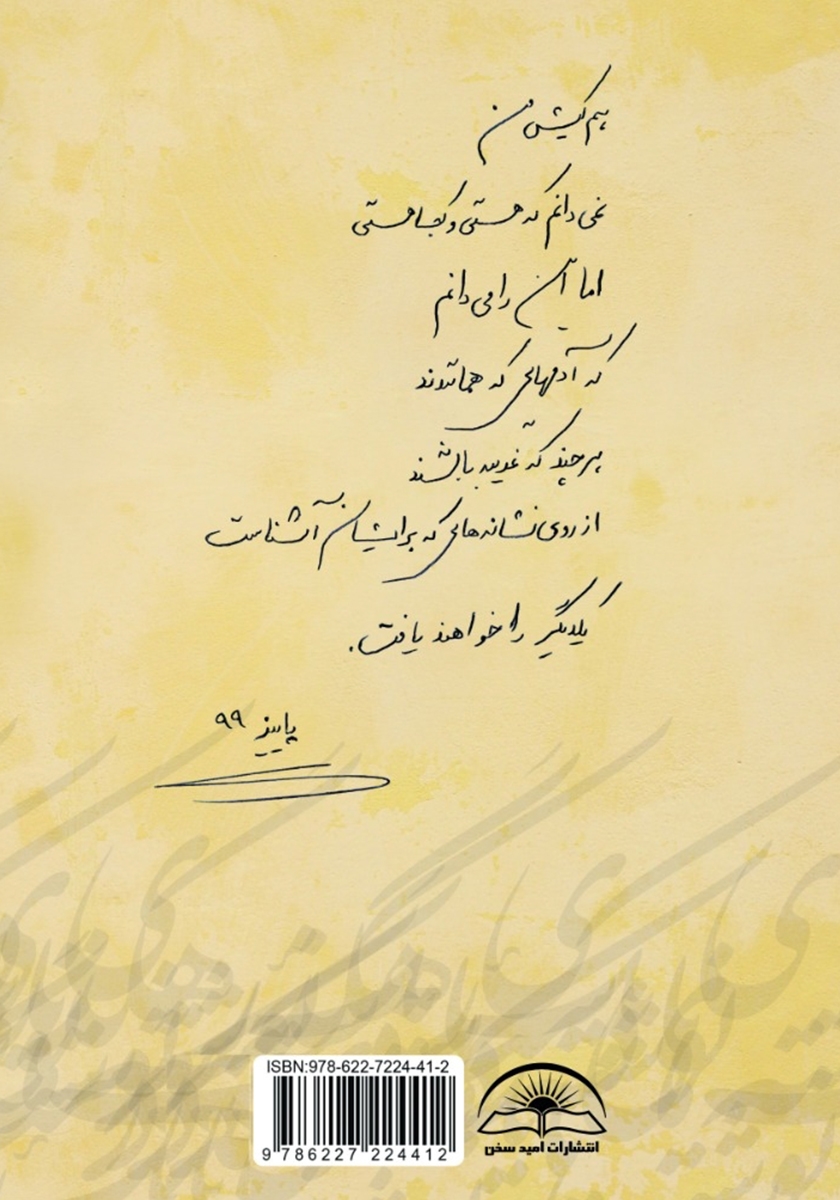 هم کیش من
نمی دانم که هستی و کجا هستی
اما این را می دانم
که آدمهایی که همانندند
هر چند که غریبه باشند
از روی نشانه هایی که برایشان آشناست
یکدیگر را خواهند یافت.
پاییز ۹۹
ISBN:978-622-7224-41-2
9 786227 224412
انتشارات امید سخن